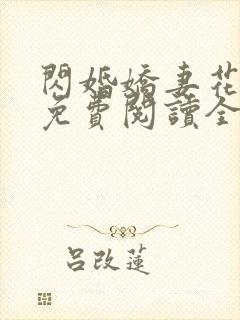 閃婚嬌妻花
免費閱讀全
呂改蓮